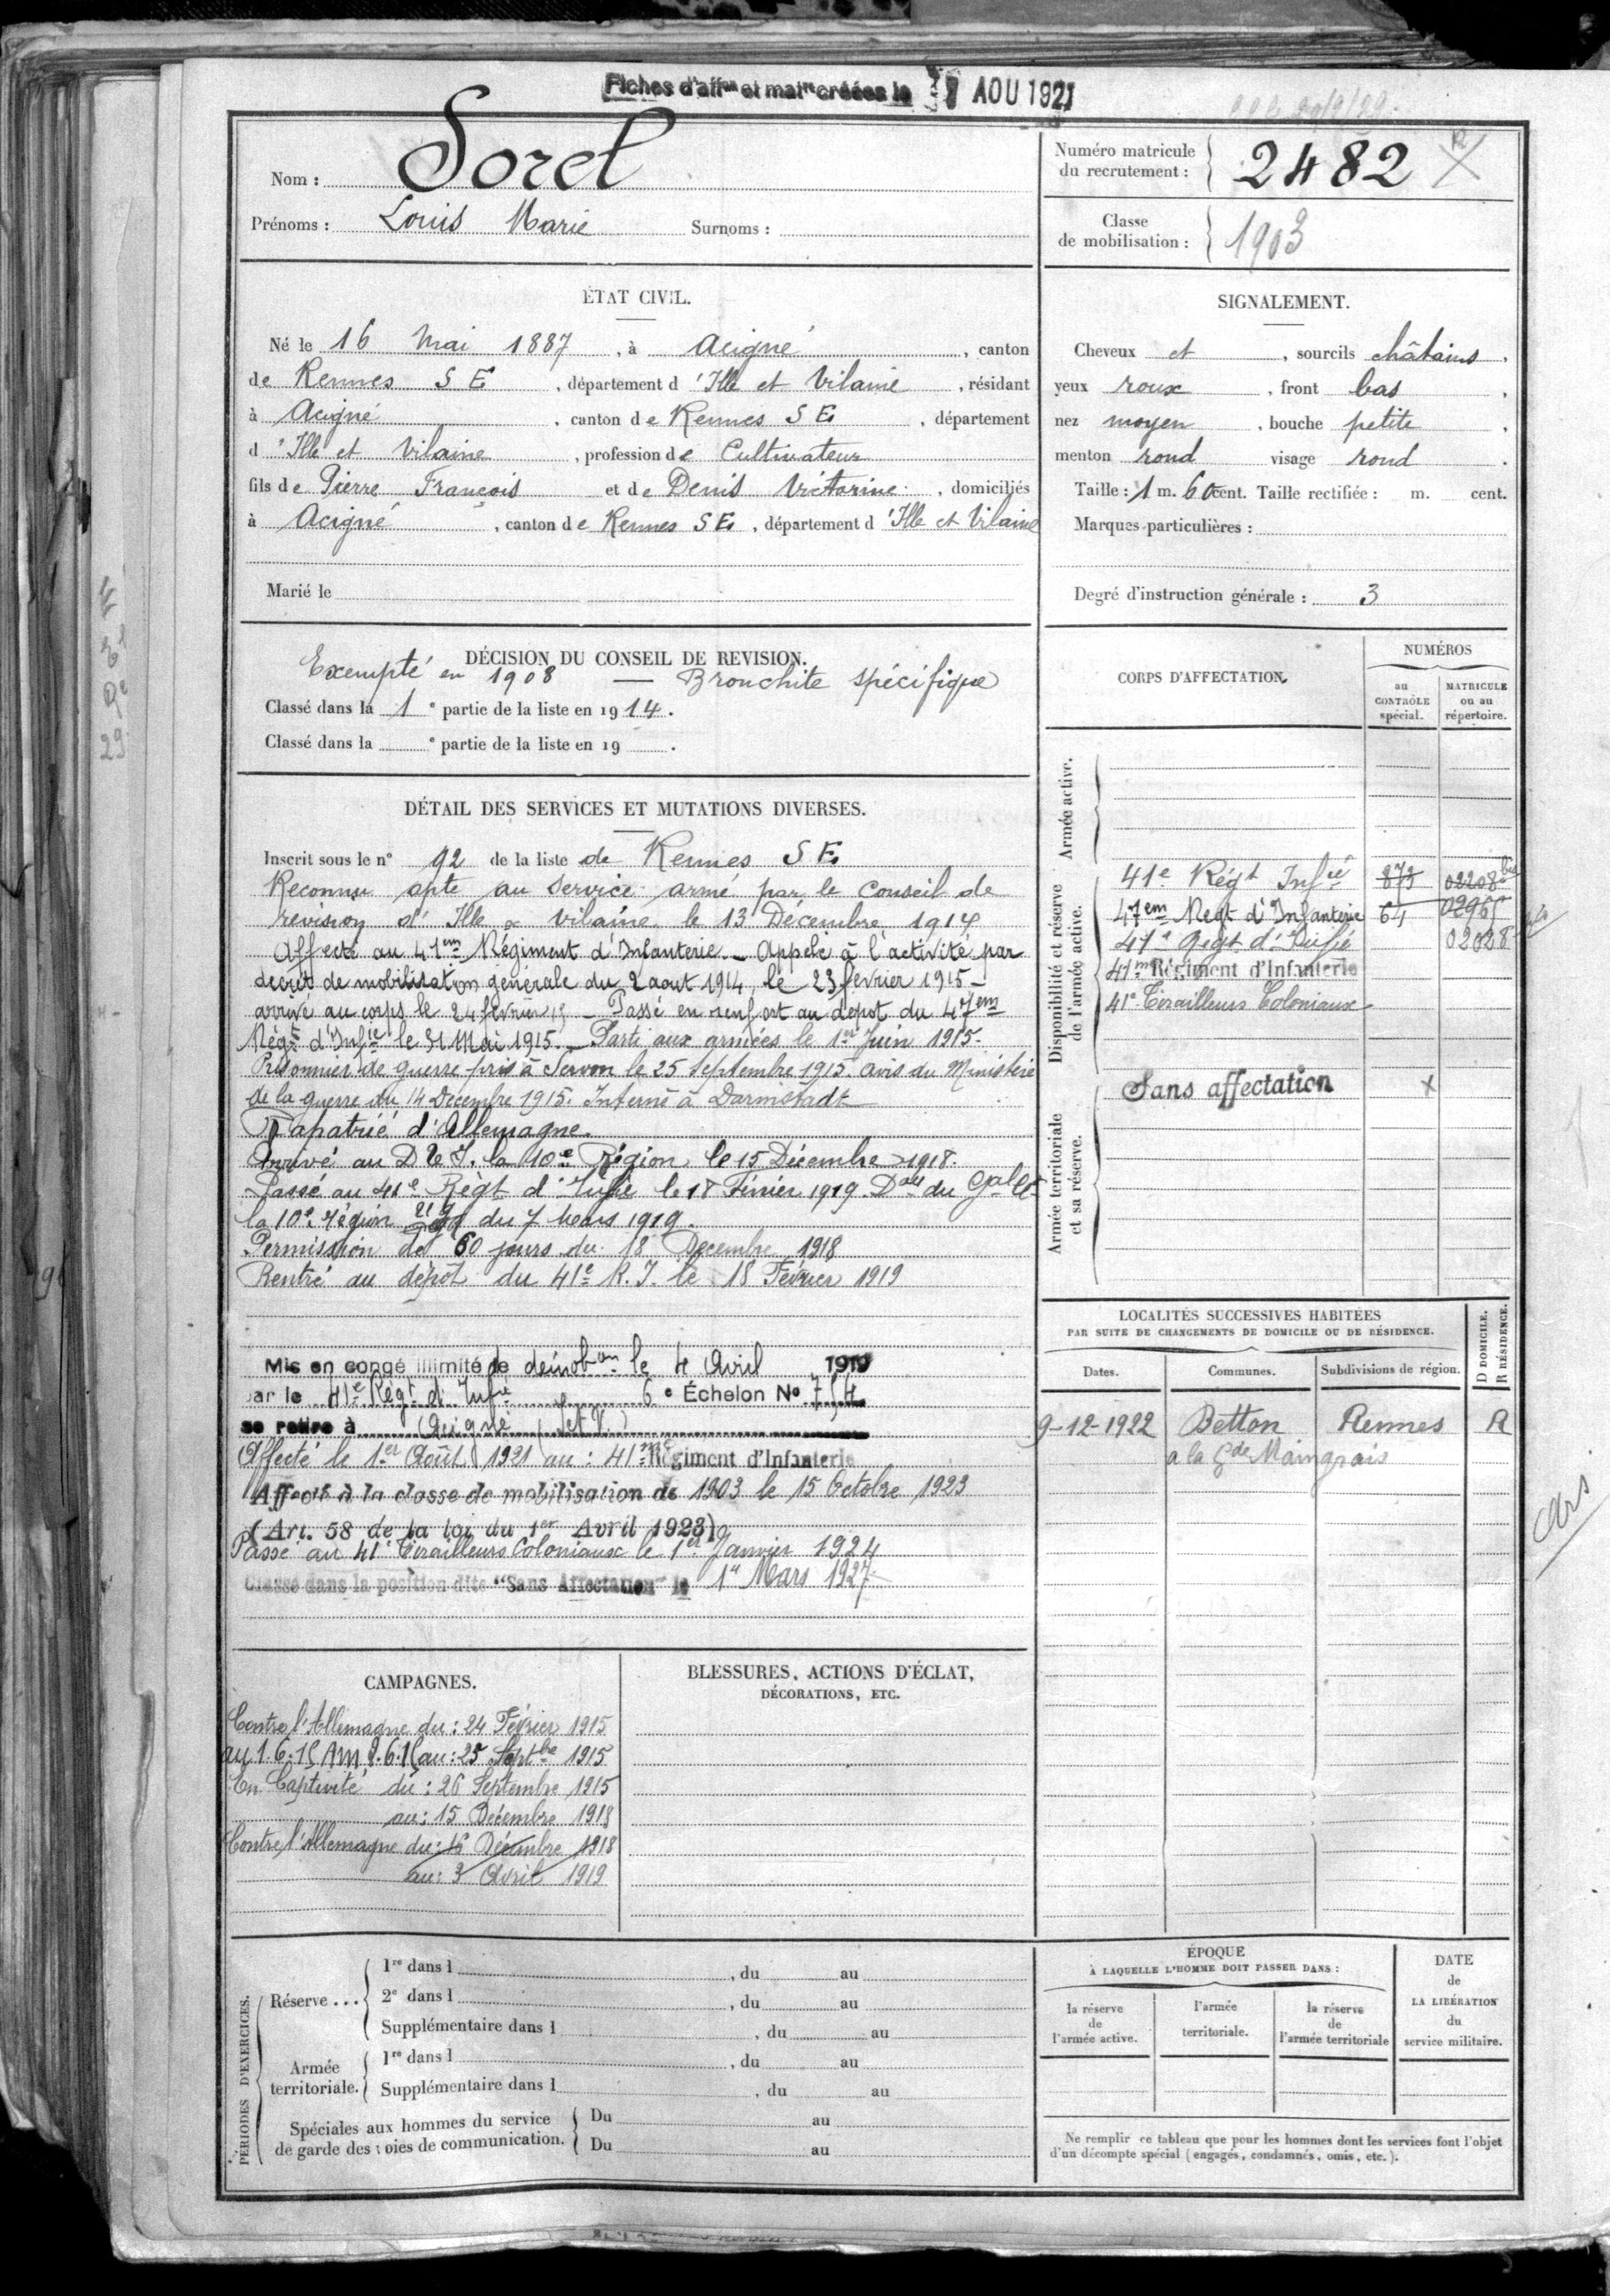 Fiches d'affon et matre créées le 7 AOU 1921
Nom : Sorel
Prénoms : Louis Marie Surnoms :
Numéro matricule du recrutement : 2482
Classe de mobilisation : 1903
ÉTAT CIVIL.
Né le 16 Mai 1887, à Acigné, canton
de Rennes S E, département d'Ille et Vilaine, résidant
à Acigné, canton de Rennes S E, département
d'Ille et Vilaine, profession de Cultivateur
fils de Pierre François et de Denis Victorine, domiciliés
à Acigné, canton de Rennes S E, département d'Ille et Vilaine
Marié le
SIGNALEMENT.
Cheveux et, sourcils châtains,
yeux roux, front bas,
nez moyen, bouche petite,
menton rond visage rond.
Taille : 1 m. 60 cent. Taille rectifiée : m. cent.
Marques particulières :
Degré d'instruction générale : 3
DÉCISION DU CONSEIL DE REVISION.
Exempté en 1908 — Bronchite spécifique
Classé dans la 1e partie de la liste en 1914.
Classé dans la e partie de la liste en 19 .
DÉTAIL DES SERVICES ET MUTATIONS DIVERSES.
Inscrit sous le n° 92 de la liste de Rennes S E
Reconnu apte au service armé par le Conseil de
revision d'Ille & Vilaine le 13 Décembre 1914
Affecté au 41em Régiment d'Infanterie. - Appelé à l'activité par
decret de mobilisation générale du 2 aout 1914, le 23 fevrier 1915 -
arrivé au corps le 24 fevrier 15 - Passé en renfort au dépot du 47em
Régt d'Infie le 31 Mai 1915. - Parti aux armées le 1er Juin 1915.
Prisonnier de guerre pris à Servon le 25 Septembre 1915. avis du Ministère
de la guerre du 14 Decembre 1915. Interné à Darmstadt
Rapatrié d'Allemagne.
Arrivé au D de I. la 10e Région le 15 Décembre 1918.
Passé au 41e Regt d'Infie le 18 Février 1919. Don du Gal Ct
la 10e région du 7 Mars 1919.
Permission de 60 jours du 18 Decembre 1918
Rentré au dépôt du 41e R. I. le 18 Février 1919
Mis en congé illimité de démobon le 4 Avril 1919
par le 41e Régt d'Infie 6e Échelon No 754
se retire à Acigné (I et V.)
Affecté le 1er Août 1921 au : 41me Régiment d'Infanterie
Affecté à la classe de mobilisation de 1903 le 15 Octobre 1923
(Art. 58 de la loi du 1er Avril 1923)
Passé au 41e Tirailleurs Coloniaux le 1er Janvier 1924
Classé dans la position dite "Sans Affectation" le 1er Mars 1927
CORPS D'AFFECTATION.
NUMÉROS
au CONTRÔLE spécial.
MATRICULE ou au répertoire.
Armée active.
Disponibilité et réserve de l'armée active.
41e Régt Infie 873 02208 bis
47em Regt d'Infanterie 64 02965
41e Regt d'Infie 02028
41me Régiment d'Infanterie
41e Tirailleurs Coloniaux
Armée territoriale et sa réserve.
Sans affectation x
LOCALITÉS SUCCESSIVES HABITÉES
PAR SUITE DE CHANGEMENTS DE DOMICILE OU DE RÉSIDENCE.
D DOMICILE. R RÉSIDENCE.
Dates. Communes. Subdivisions de région.
9-12-1922 Betton Rennes R
a la Gde Maingrais
cars
CAMPAGNES.
Contre l'Allemagne du : 24 Février 1915
au 1.6.15 AM 2.6.15 au : 25 Septbre 1915
En Captivité du : 26 Septembre 1915
au : 15 Décembre 1918
Contre l'Allemagne du : 16 Décembre 1918
au : 3 Avril 1919
BLESSURES, ACTIONS D'ÉCLAT,
DÉCORATIONS, ETC.
PÉRIODES D'EXERCICES.
Réserve ...
1re dans l , du au
2e dans l , du au
Supplémentaire dans l , du au
Armée territoriale.
1re dans l , du au
Supplémentaire dans l , du au
Spéciales aux hommes du service
de garde des voies de communication.
Du au
Du au
ÉPOQUE
À LAQUELLE L'HOMME DOIT PASSER DANS :
la réserve de l'armée active.
l'armée territoriale.
la réserve de l'armée territoriale
DATE de LA LIBÉRATION du service militaire.
Ne remplir ce tableau que pour les hommes dont les services font l'objet
d'un décompte spécial (engagés, condamnés, omis, etc.).